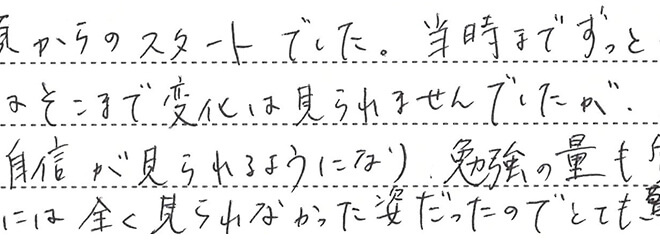 からのスタートでした。当時までずっと
はそこまで変化は見られませんでしたが、
自信が見られるようになり、勉強の量も
には全く見られなかった姿だったのでとても